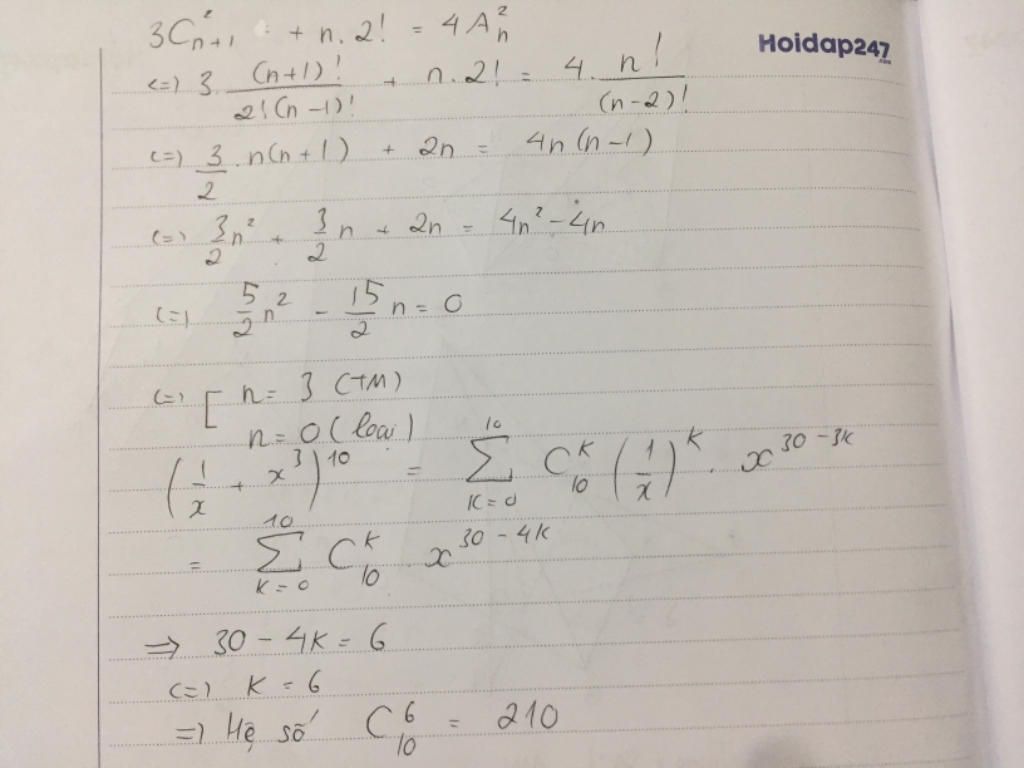 3C²ₙ₊₁ + n.2! = 4A²ₙ
Hoidap247.com
<=> 3. (n+1)!/2!(n-1)! + n.2! = 4. n!/(n-2)!
<=> 3/2 .n(n+1) + 2n = 4n(n-1)
<=> 3/2 n² + 3/2 n + 2n = 4n² - 4n
<=> 5/2 n² - 15/2 n = 0
<=> [ n = 3 (TM)
n = 0 (loại)
(1/x + x³)¹⁰ = ∑_{K=0}^{10} C_{10}^{K} (1/x)^{K} . x^{30-3K}
= ∑_{K=0}^{10} C_{10}^{K} . x^{30-4K}
=> 30 - 4K = 6
<=> K = 6
=> Hệ số C_{10}^{6} = 210